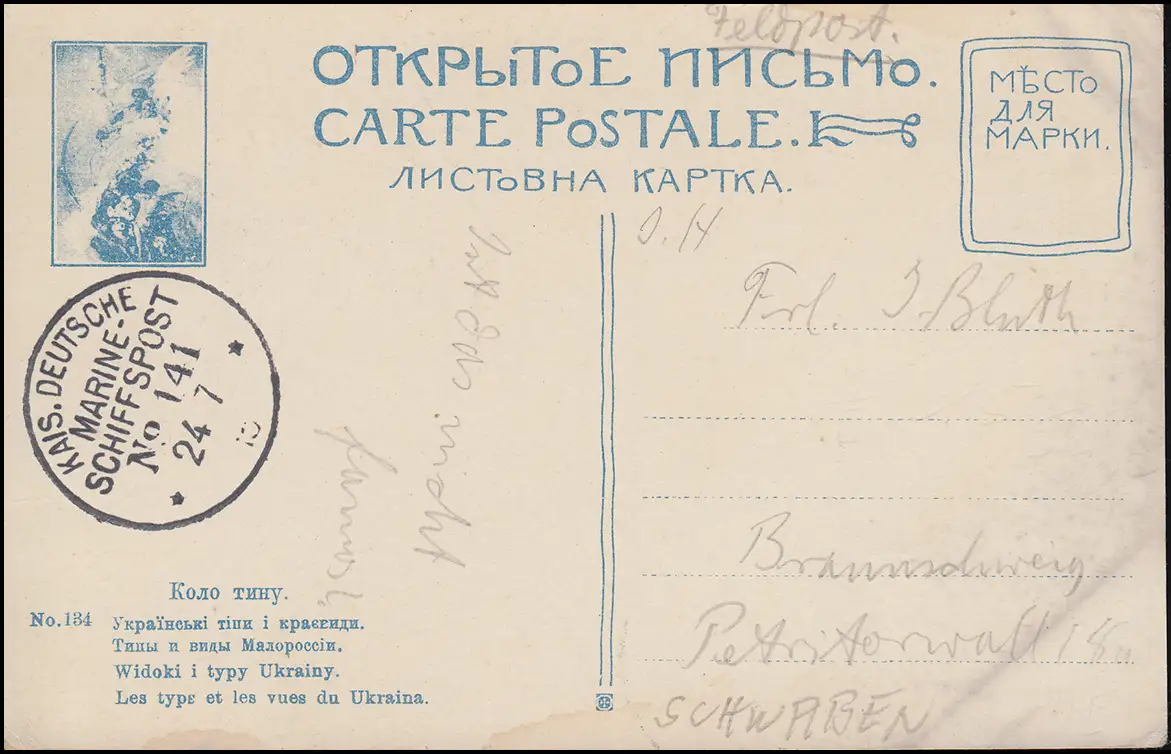 Feldpost.
ОТКРЫТОЕ ПИСЬМО.
CARTE POSTALE.
ЛИСТОВНА КАРТКА.
МѢСТО
ДЛЯ
МАРКИ.
KAIS. DEUTSCHE
MARINE-
SCHIFFSPOST
No 141
24 7
Frl. J. Blüth
Braunschweig
Petritorwall 18
SCHWABEN
Коло тину.
No. 134 Українські тіпи і краєвиди.
Типы и виды Малороссіи.
Widoki i typy Ukrainy.
Les type et les vues du Ukraina.